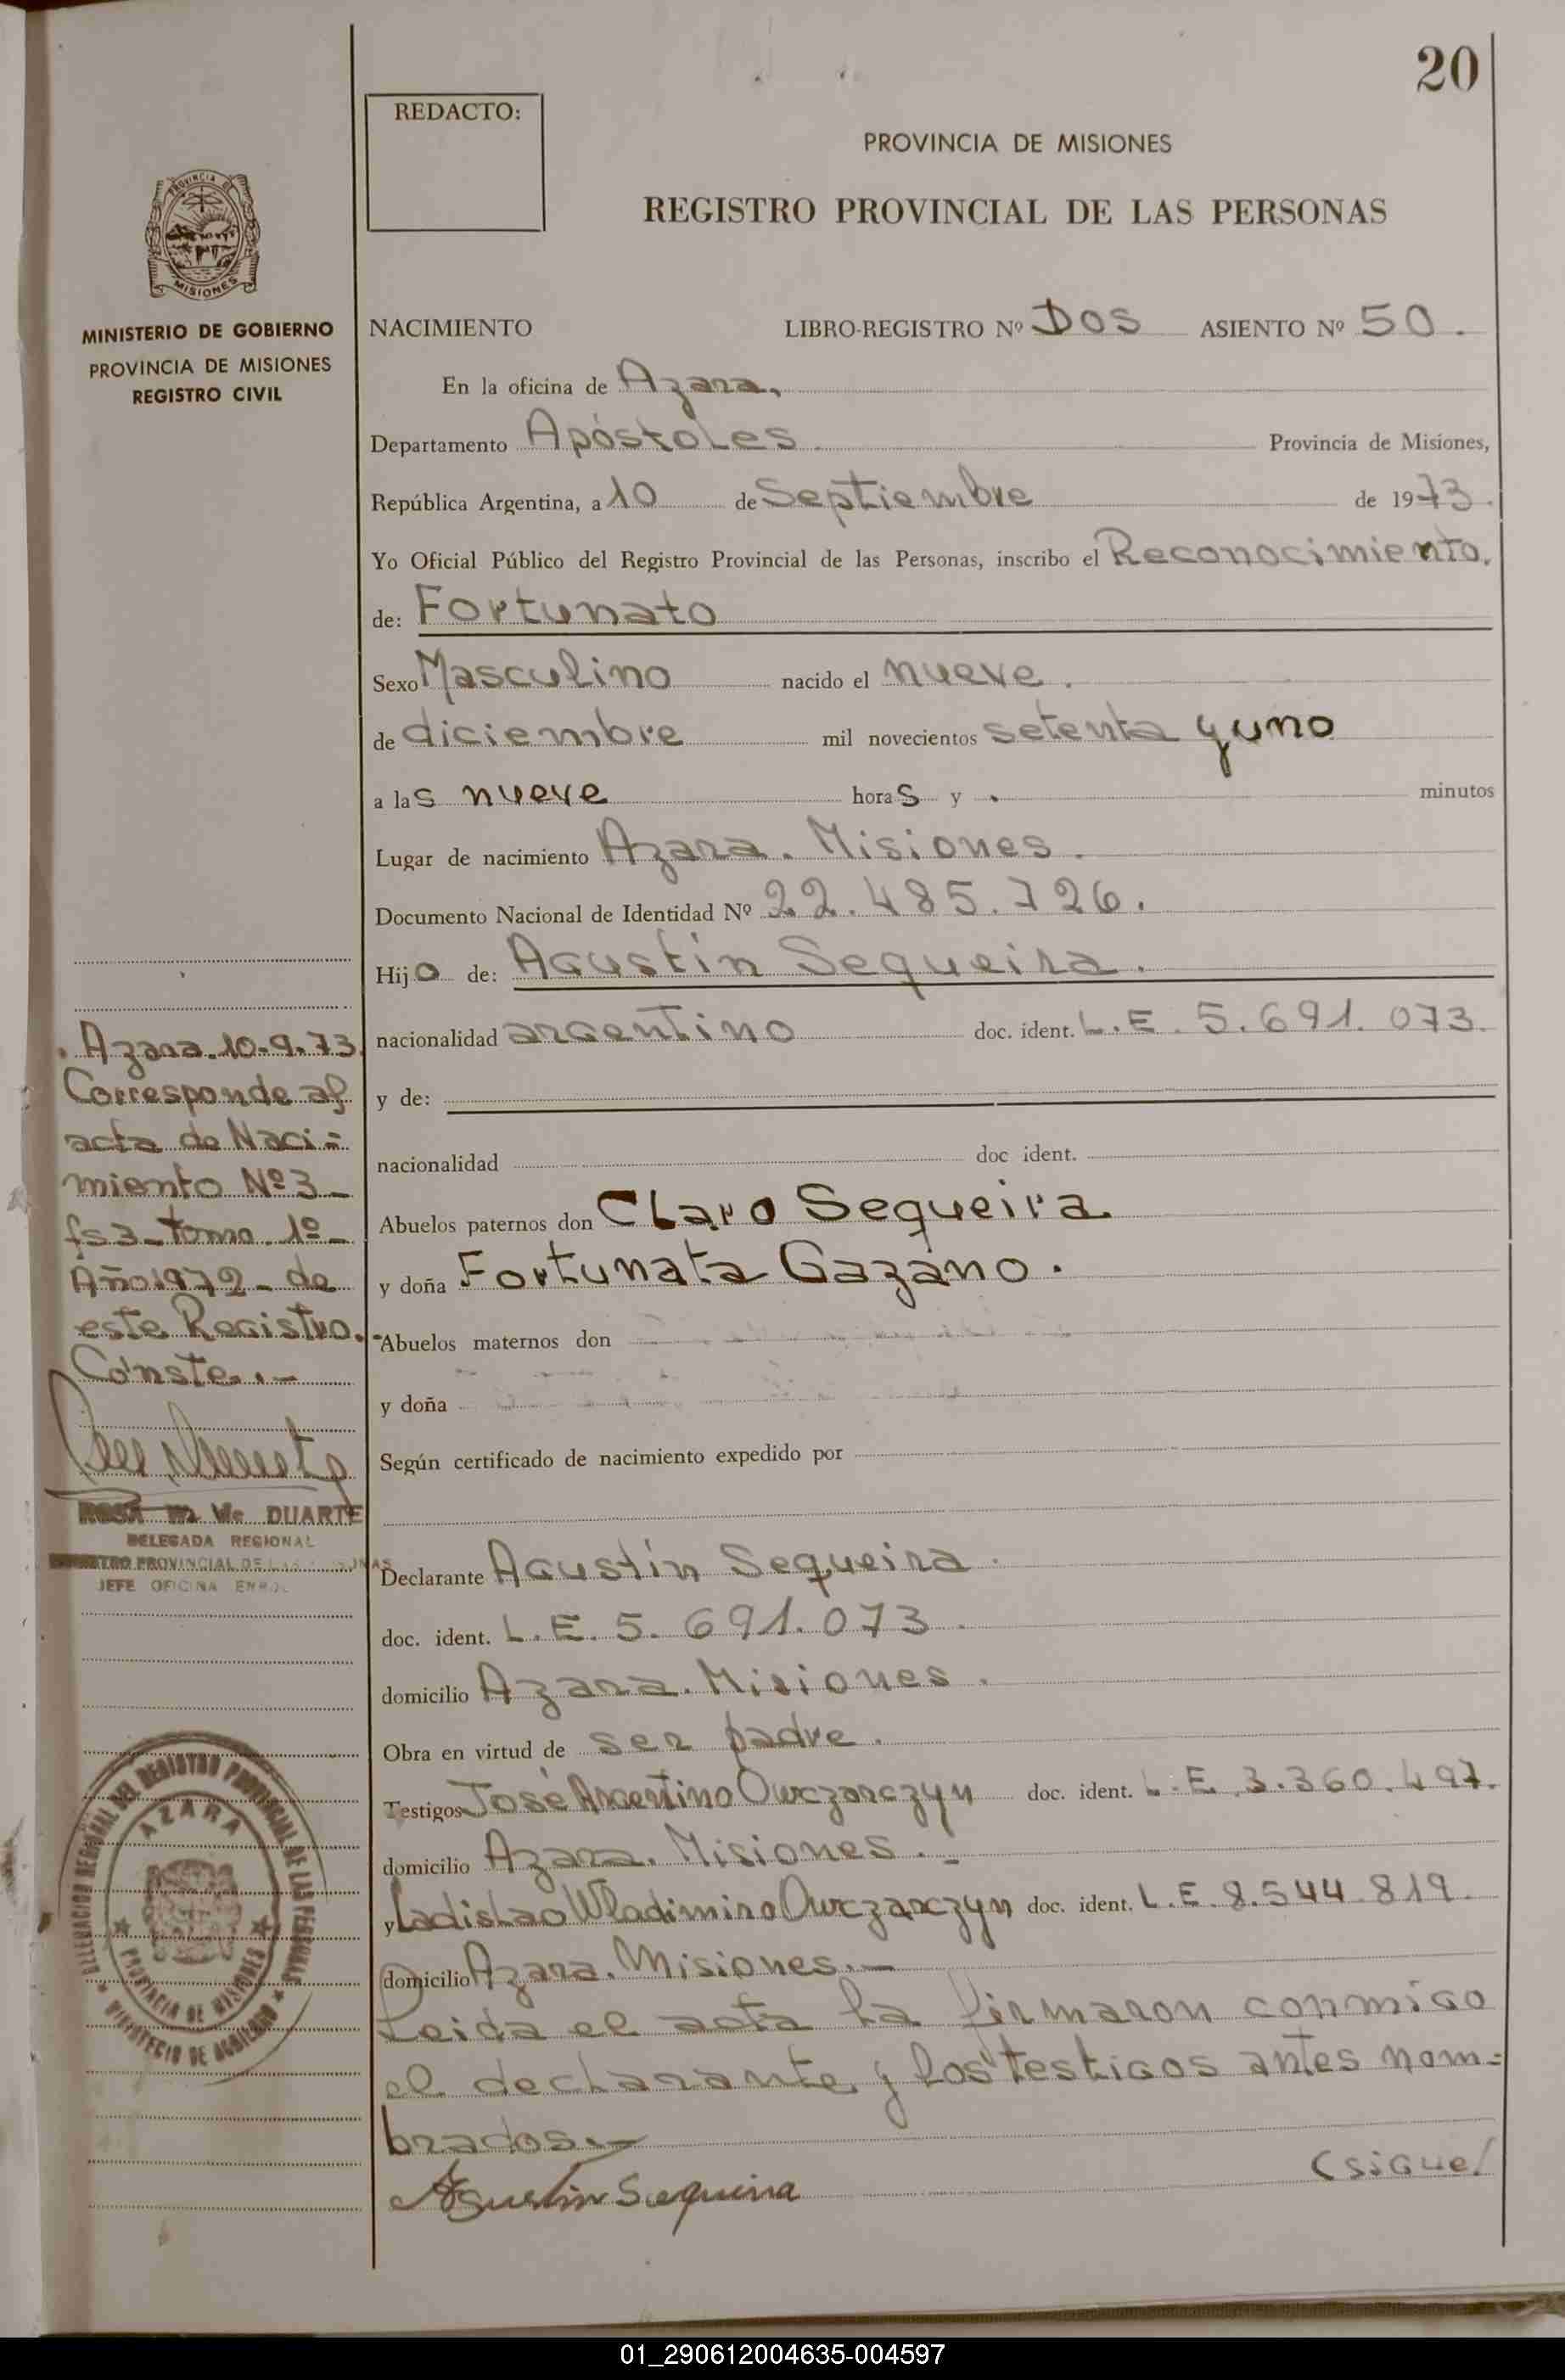 20
REDACTO:
PROVINCIA DE MISIONES
REGISTRO PROVINCIAL DE LAS PERSONAS
PROVINCIA DE
MISIONES
MINISTERIO DE GOBIERNO
PROVINCIA DE MISIONES
REGISTRO CIVIL
NACIMIENTO LIBRO-REGISTRO Nº Dos ASIENTO Nº 50.
En la oficina de Azara,
Departamento Apóstoles. Provincia de Misiones,
República Argentina, a 10 de Septiembre de 1973.
Yo Oficial Público del Registro Provincial de las Personas, inscribo el Reconocimiento.
de: Fortunato
Sexo Masculino nacido el nueve.
de diciembre mil novecientos setenta y uno
a las nueve horas y . minutos
Lugar de nacimiento Azara. Misiones.
Documento Nacional de Identidad Nº 22.485.726.
Hijo de: Agustín Sequeira.
nacionalidad argentino doc. ident. L.E. 5.691.073.
y de:
nacionalidad doc ident.
Abuelos paternos don Claro Sequeira.
y doña Fortunata Gazano.
Abuelos maternos don
y doña
Según certificado de nacimiento expedido por
Declarante Agustín Sequeira.
doc. ident. L.E. 5.691.073.
domicilio Azara. Misiones.
Obra en virtud de ser padre.
Testigos José Argentino Owczarczyn doc. ident. L.E. 3.360.497.
domicilio Azara. Misiones.-
y Ladislao Wladimiro Owczarczyn doc. ident. L.E. 8.544.819.
domicilio Azara. Misiones.-
Leida el acta la firmaron conmigo
el declarante y los testigos antes nom=
brados.-
(sigue/
Agustin Sequeira
. Azara. 10-9-73.
Corresponde al
acta de Naci=
miento Nº 3-
fs 3- tomo 1º-
Año 1972- de
este Registro.-
Conste.-
ROSA M. DUARTE
DELEGADA REGIONAL
REGISTRO PROVINCIAL DE LAS PERSONAS
JEFE OFICINA ENROL.
DELEGACION REGIONAL DEL REGISTRO PROVINCIAL DE LAS PERSONAS
AZARA
PROVINCIA DE MISIONES
MINISTERIO DE GOBIERNO
01_290612004635-004597